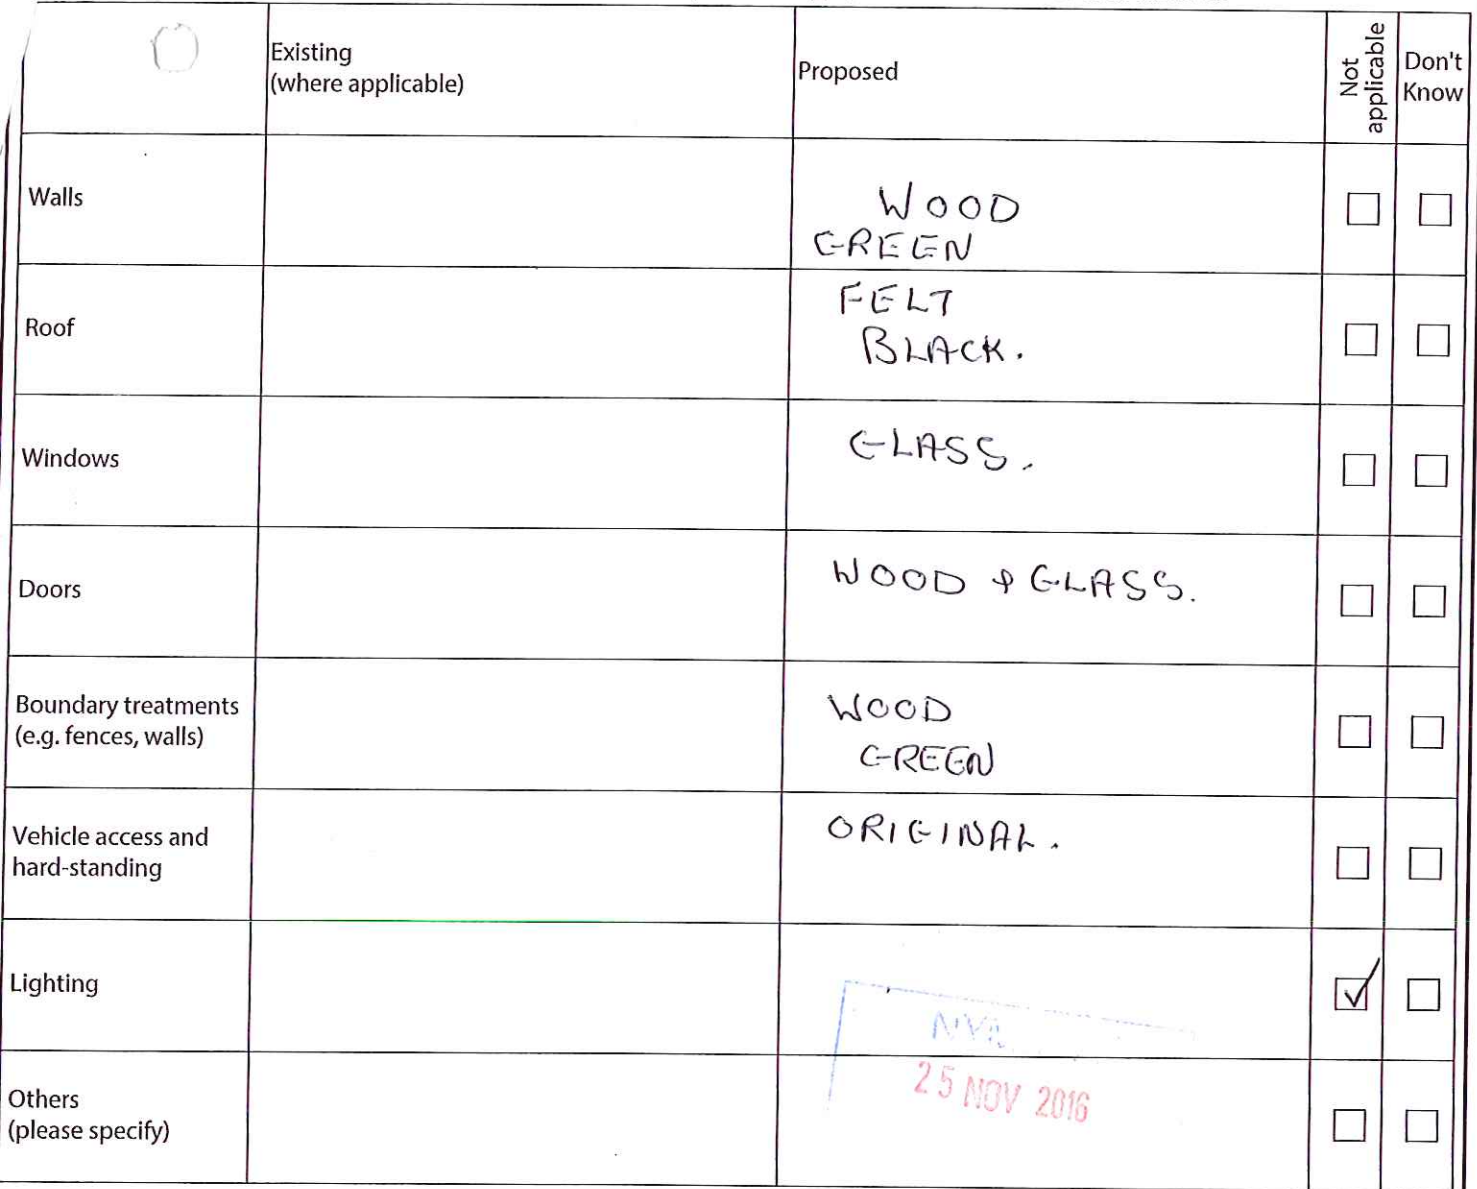 Existing
(where applicable)
Proposed
Not
applicable
Don't
Know
Walls
WOOD
GREEN
Roof
FELT
BLACK.
Windows
GLASS.
Doors
WOOD & GLASS.
Boundary treatments
(e.g. fences, walls)
WOOD
GREEN
Vehicle access and
hard-standing
ORIGINAL.
Lighting
Others
(please specify)
25 NOV 2016